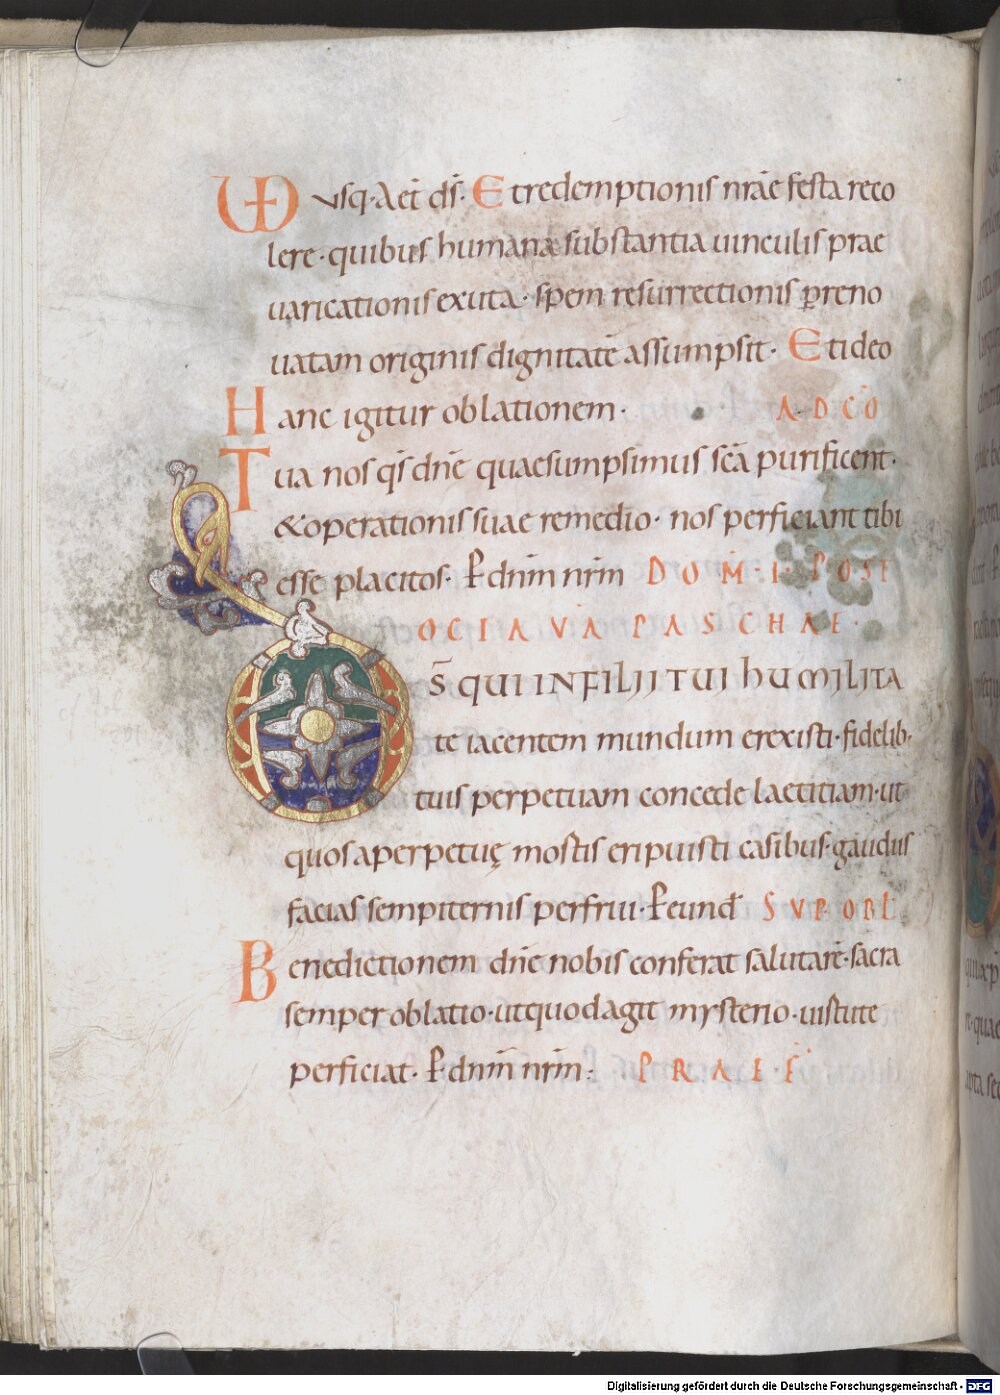 VD usq· Aet̄ ds̄· Et redemptionis nr̄ae festa reco
lere· quibus humana substantia uinculis prae
uaricationis exuta· spem resurrectionis ꝑ reno
uatam originis dignitatē assumpsit· Et ideo
Hanc igitur oblationem· AD CŌ
Tua nos qs̄ dn̄e quaesumpsimus sc̄a purificent·
& operationis suae remedio· nos perficiant tibi
esse placitos· P̄ dnm̄ nrm̄ DOM̄·I·POST
OCTAVA PASCHAE·
DS̄ QUI IN FILII TUI HUMILITA
te iacentem mundum erexisti· fidelib·
tuis perpetuam concede laetitiam· ut
quos a perpetuę mortis eripuisti casibus· gaudiis
facias sempiternis perfrui· P̄ eund̄ SUP OBL̄
Benedictionem dn̄e nobis conferat salutarē· sacra
semper oblatio· ut quod agit mysterio· uirtute
perficiat· P̄ dnm̄ nrm̄· PRAEF̄
Digitalisierung gefördert durch die Deutsche Forschungsgemeinschaft - DFG